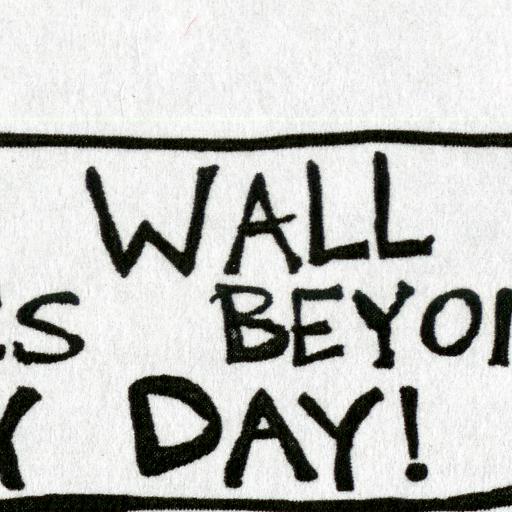 WALL
ES BEYON
Y DAY!